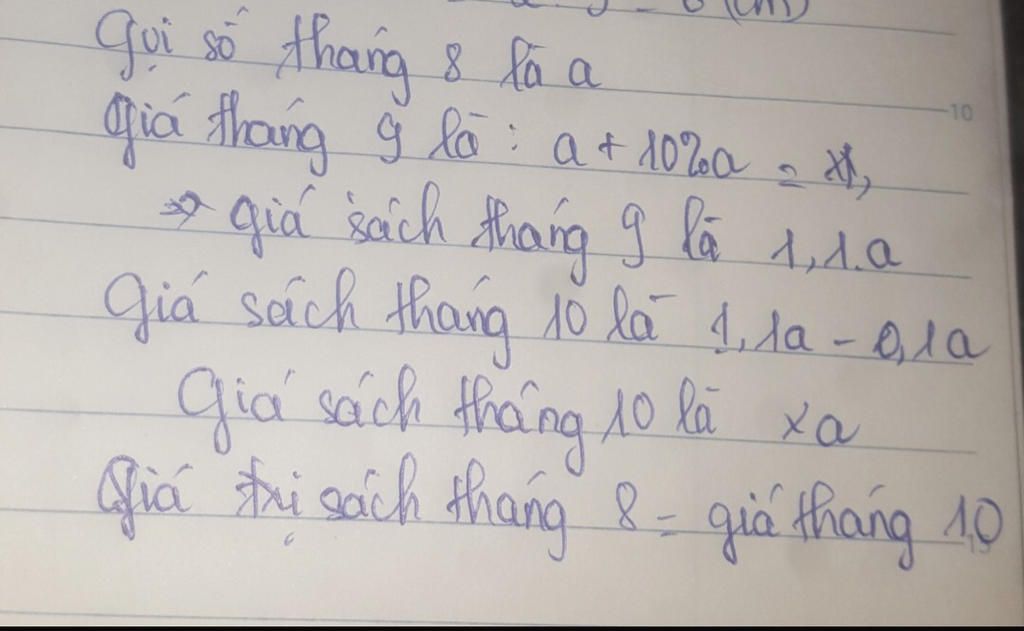 Gọi số tháng 8 là a
10
giá tháng 9 là : a + 10%a =
=> giá sách tháng 9 là 1,1.a
Giá sách tháng 10 là 1,1a - 0,1a
Giá sách tháng 10 là xa
Giá trị sách tháng 8 = giá tháng 10